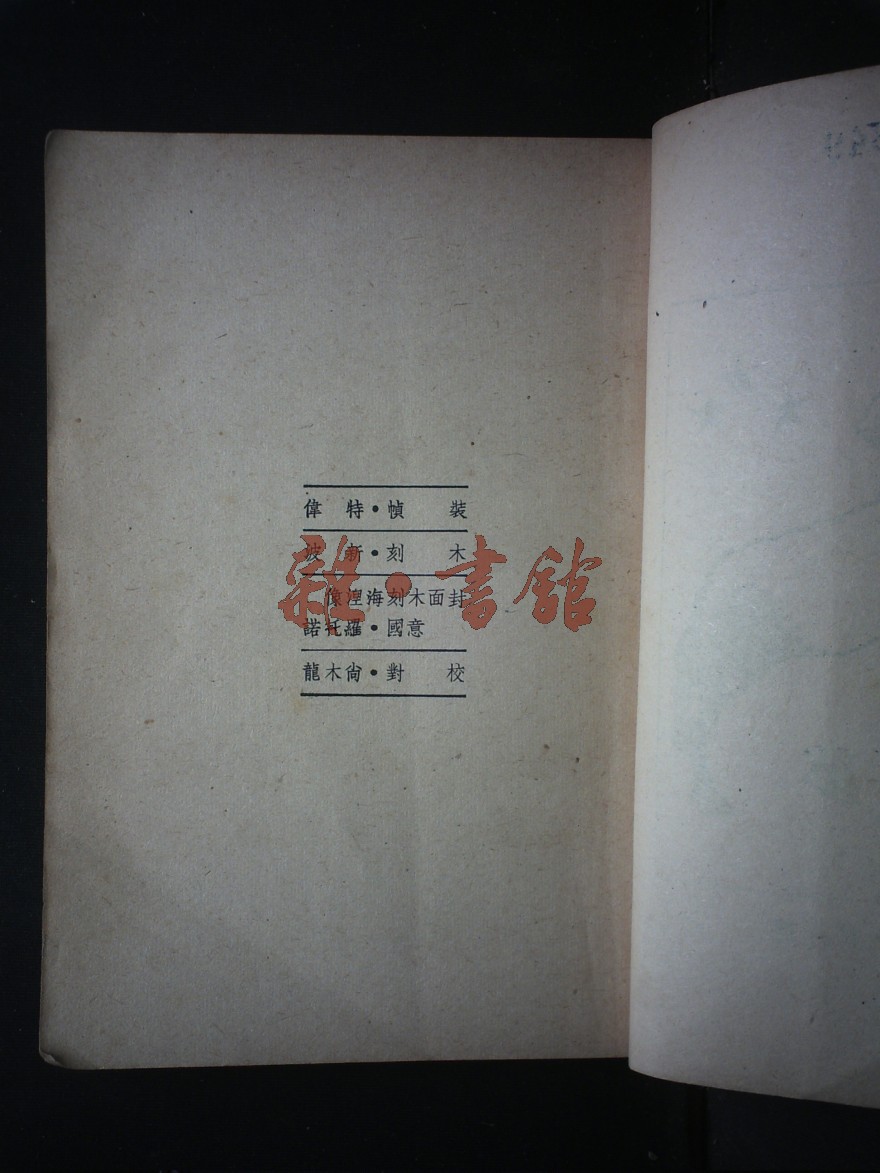 裝幀・特偉
木刻・新波
封面木刻海湼像
意國・羅托諾
校對・尙木龍
雜・書館